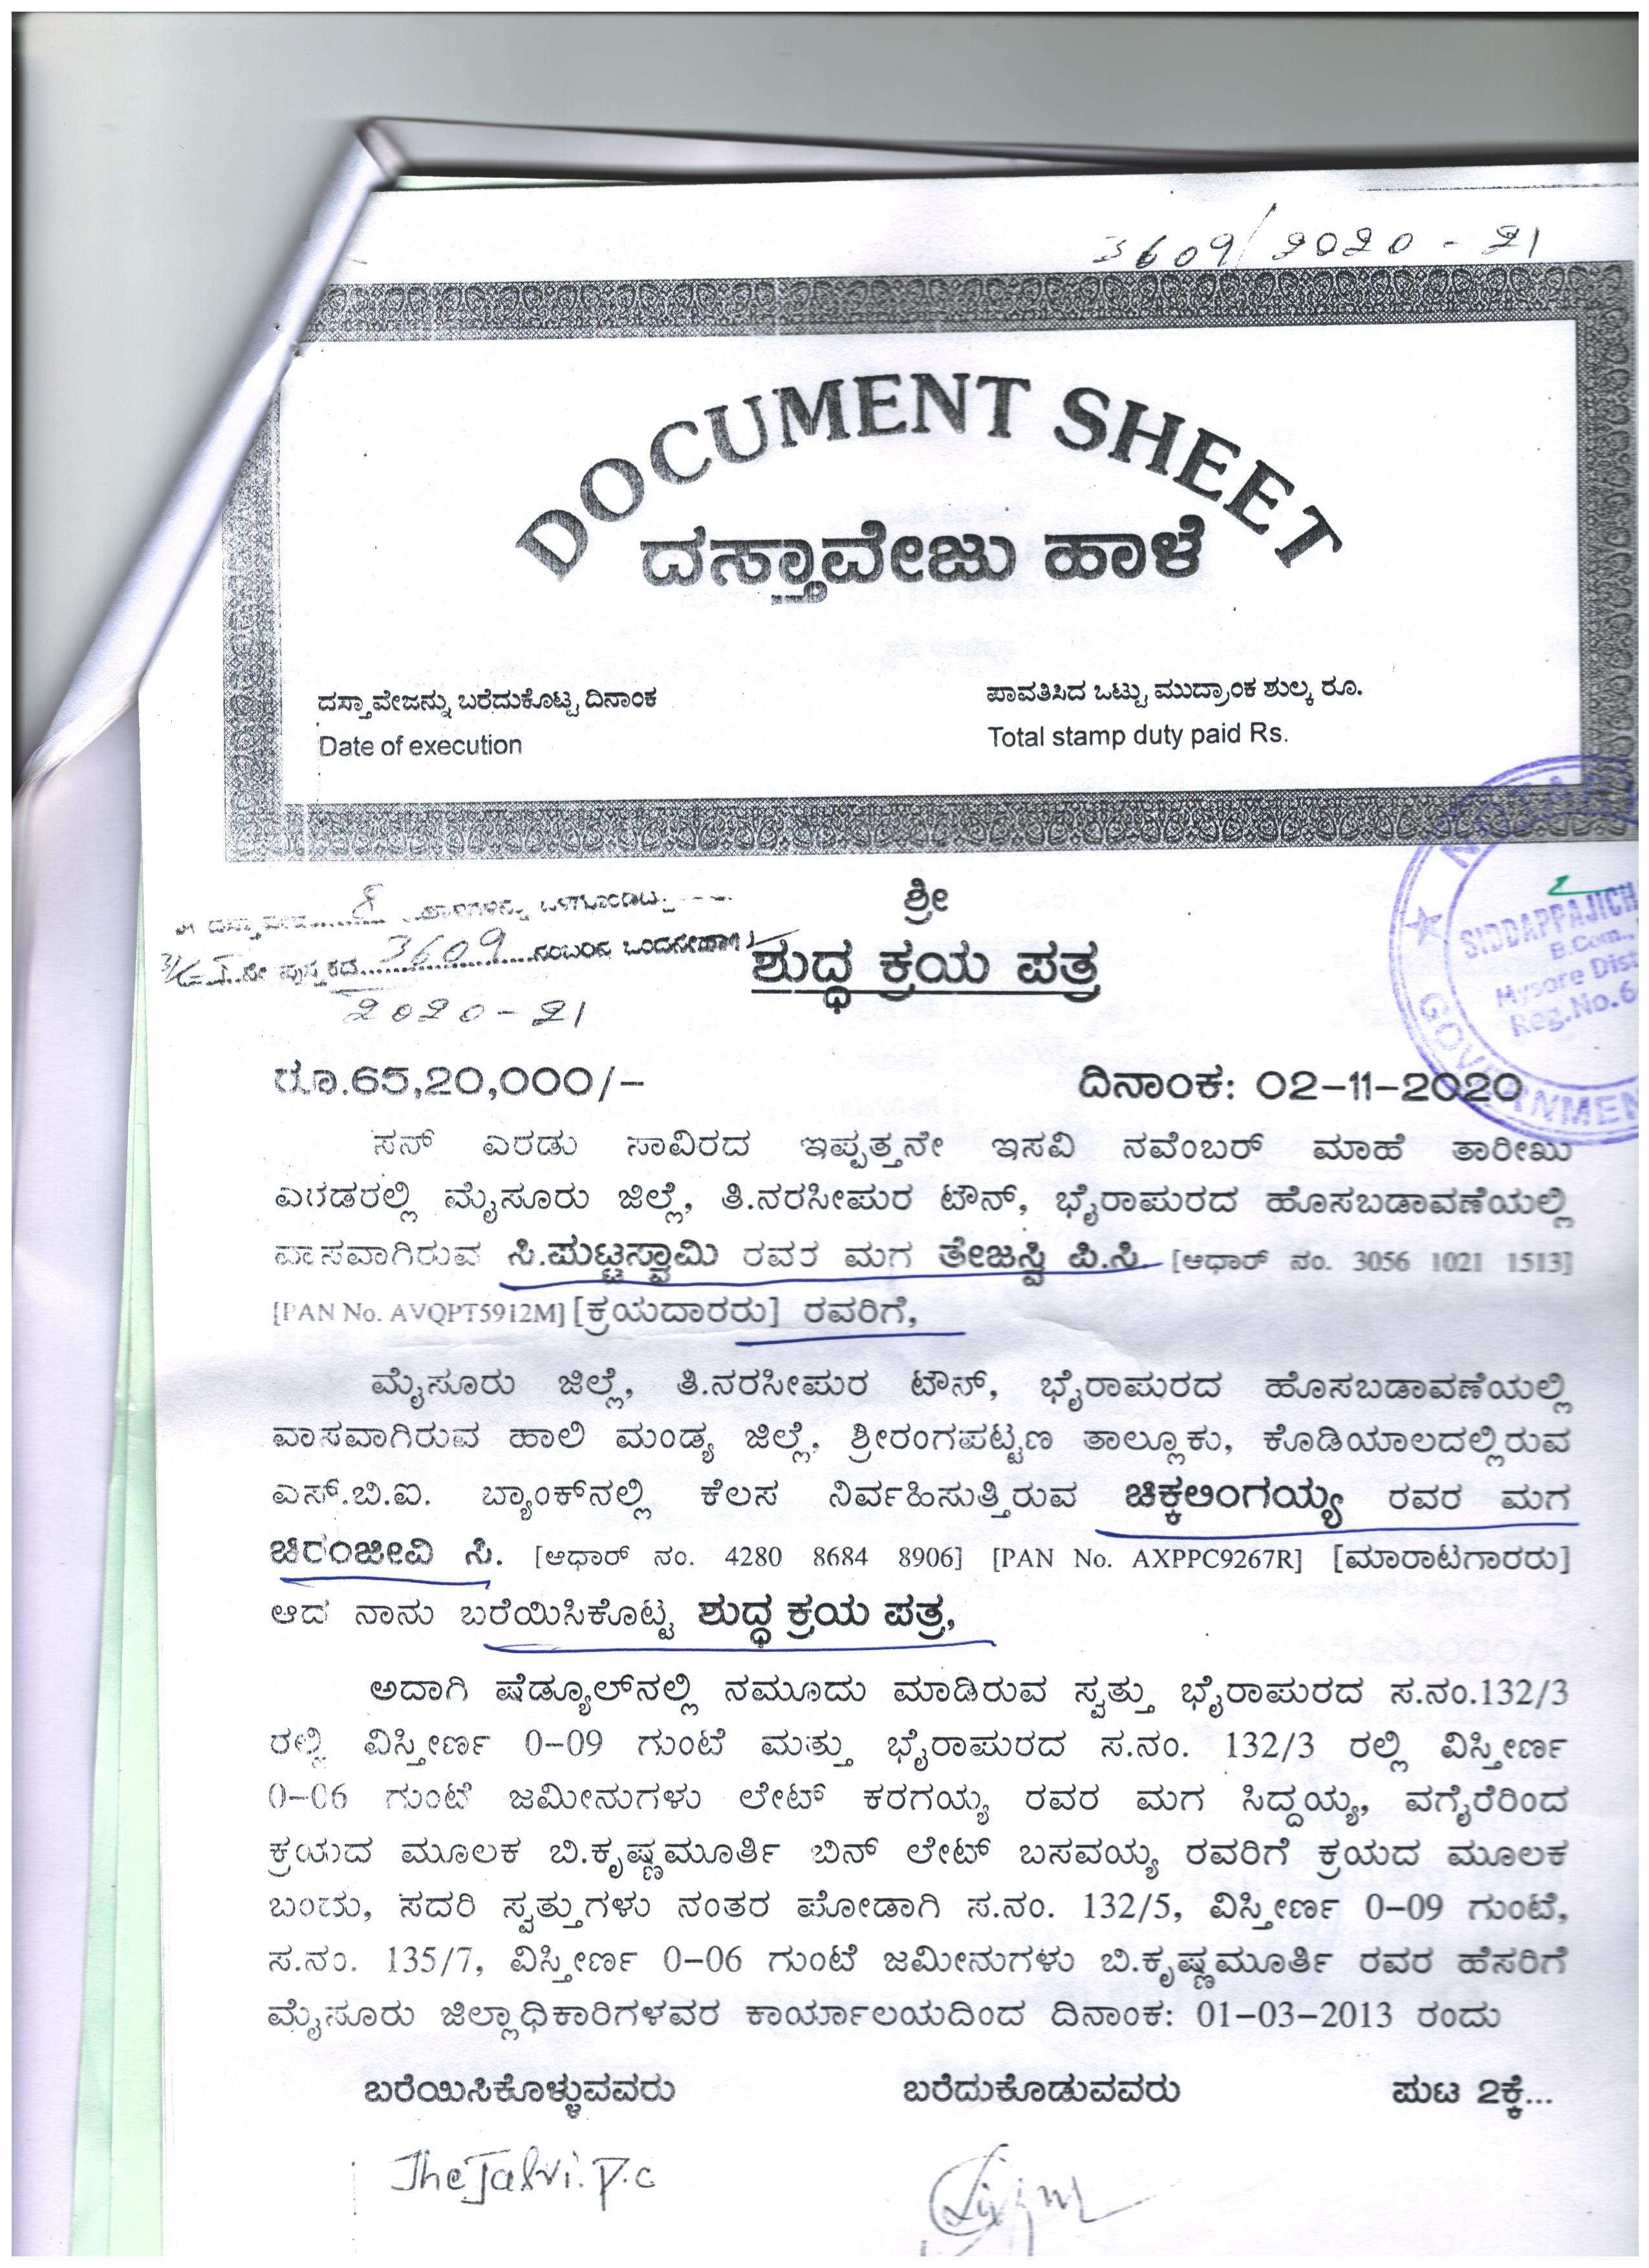 3609/2020-21
DOCUMENT SHEET
ದಸ್ತಾವೇಜು ಹಾಳೆ
ದಸ್ತಾವೇಜನ್ನು ಬರೆದುಕೊಟ್ಟ ದಿನಾಂಕ
Date of execution
ಪಾವತಿಸಿದ ಒಟ್ಟು ಮುದ್ರಾಂಕ ಶುಲ್ಕ ರೂ.
Total stamp duty paid Rs.
SIDDAPPAJICH
B.Com.,
Mysore Dist
Reg.No.6
GOVERNMEN
ಶ್ರೀ
8 ಹಾಳೆಗಳನ್ನು ಒಳಗೊಂಡಿದೆ
ನೇ ಪುಸ್ತಕದ 3609 ನಂಬರಿನ ಒಂದನೇಹಾಳೆ
2020-21
ಶುದ್ಧ ಕ್ರಯ ಪತ್ರ
ರೂ.65,20,000/-
ದಿನಾಂಕ: 02-11-2020
ಸನ್ ಎರಡು ಸಾವಿರದ ಇಪ್ಪತ್ತನೇ ಇಸವಿ ನವೆಂಬರ್ ಮಾಹೆ ತಾರೀಖು
ಎರಡರಲ್ಲಿ ಮೈಸೂರು ಜಿಲ್ಲೆ, ತಿ.ನರಸೀಪುರ ಟೌನ್, ಭೈರಾಪುರದ ಹೊಸಬಡಾವಣೆಯಲ್ಲಿ
ವಾಸವಾಗಿರುವ ಸಿ.ಪುಟ್ಟಸ್ವಾಮಿ ರವರ ಮಗ ತೇಜಸ್ವಿ ಪಿ.ಸಿ. [ಆಧಾರ್ ನಂ. 3056 1021 1513]
[PAN No. AVQPT5912M] [ಕ್ರಯದಾರರು] ರವರಿಗೆ,
ಮೈಸೂರು ಜಿಲ್ಲೆ, ತಿ.ನರಸೀಪುರ ಟೌನ್, ಭೈರಾಪುರದ ಹೊಸಬಡಾವಣೆಯಲ್ಲಿ
ವಾಸವಾಗಿರುವ ಹಾಲಿ ಮಂಡ್ಯ ಜಿಲ್ಲೆ, ಶ್ರೀರಂಗಪಟ್ಟಣ ತಾಲ್ಲೂಕು, ಕೊಡಿಯಾಲದಲ್ಲಿರುವ
ಎಸ್.ಬಿ.ಐ. ಬ್ಯಾಂಕ್‌ನಲ್ಲಿ ಕೆಲಸ ನಿರ್ವಹಿಸುತ್ತಿರುವ ಚಿಕ್ಕಲಿಂಗಯ್ಯ ರವರ ಮಗ
ಚಿರಂಜೀವಿ ಸಿ. [ಆಧಾರ್ ನಂ. 4280 8684 8906] [PAN No. AXPPC9267R] [ಮಾರಾಟಗಾರರು]
ಆದ ನಾನು ಬರೆಯಿಸಿಕೊಟ್ಟ ಶುದ್ಧ ಕ್ರಯ ಪತ್ರ,
ಅದಾಗಿ ಷೆಡ್ಯೂಲ್‌ನಲ್ಲಿ ನಮೂದು ಮಾಡಿರುವ ಸ್ವತ್ತು ಭೈರಾಪುರದ ಸ.ನಂ.132/3
ರಲ್ಲಿ ವಿಸ್ತೀರ್ಣ 0-09 ಗುಂಟೆ ಮತ್ತು ಭೈರಾಪುರದ ಸ.ನಂ. 132/3 ರಲ್ಲಿ ವಿಸ್ತೀರ್ಣ
0-06 ಗುಂಟೆ ಜಮೀನುಗಳು ಲೇಟ್ ಕರಗಯ್ಯ ರವರ ಮಗ ಸಿದ್ದಯ್ಯ, ವಗೈರೆರಿಂದ
ಕ್ರಯದ ಮೂಲಕ ಬಿ.ಕೃಷ್ಣಮೂರ್ತಿ ಬಿನ್ ಲೇಟ್ ಬಸವಯ್ಯ ರವರಿಗೆ ಕ್ರಯದ ಮೂಲಕ
ಬಂದು, ಸದರಿ ಸ್ವತ್ತುಗಳು ನಂತರ ಪೋಡಾಗಿ ಸ.ನಂ. 132/5, ವಿಸ್ತೀರ್ಣ 0-09 ಗುಂಟೆ,
ಸ.ನಂ. 135/7, ವಿಸ್ತೀರ್ಣ 0-06 ಗುಂಟೆ ಜಮೀನುಗಳು ಬಿ.ಕೃಷ್ಣಮೂರ್ತಿ ರವರ ಹೆಸರಿಗೆ
ಮೈಸೂರು ಜಿಲ್ಲಾಧಿಕಾರಿಗಳವರ ಕಾರ್ಯಾಲಯದಿಂದ ದಿನಾಂಕ: 01-03-2013 ರಂದು
ಬರೆಯಿಸಿಕೊಳ್ಳುವವರು
ಬರೆದುಕೊಡುವವರು
ಪುಟ 2ಕ್ಕೆ...
TheJasvi.P.C